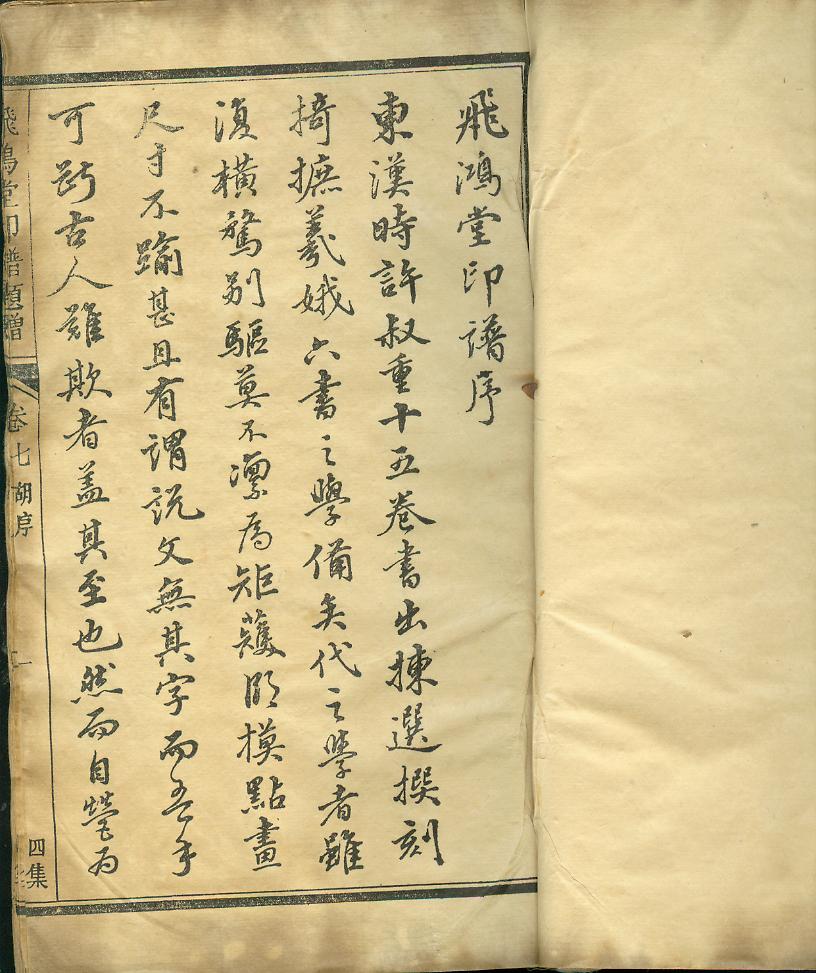 飛鴻堂印譜序
東漢時許叔重十五卷書出揀選撰刻
掎摭羲娥六書之學備矣代之學者雖
縱橫騖別驅莫不凜為矩矱臨摸點畫
尺寸不踰甚且有謂說文無其字而吾手
可斷古人難欺者蓋其至也然而自營為
飛鴻堂印譜題贈
卷七 胡序 一
四集